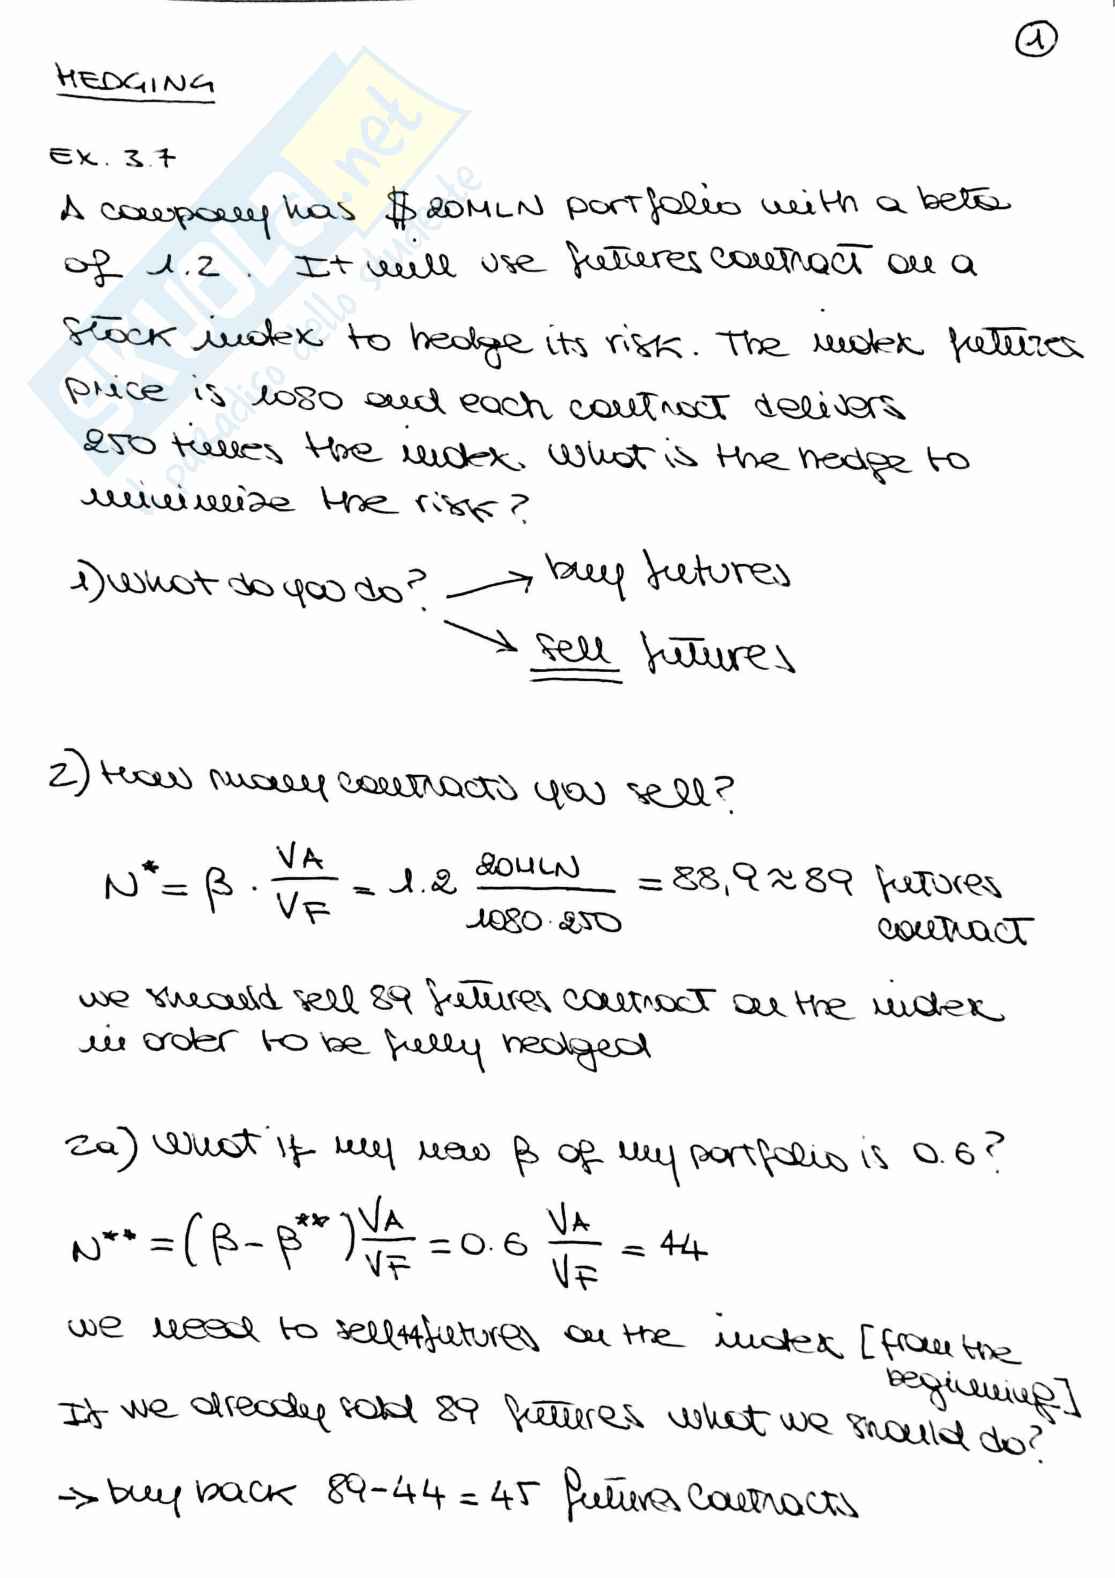 1
HEDGING
EX. 3.7
A company has $ 20MLN portfolio with a beta
of 1.2. It will use futures contract on a
stock index to hedge its risk. The index futures
price is 1080 and each contract delivers
250 times the index. What is the hedge to
minimize the risk?
1) What do you do? → buy futures
→ sell futures
2) How many contracts you sell?
N* = β · VA/VF = 1.2 20MLN/1080·250 = 88,9 ≈ 89 futures
contract
we should sell 89 futures contract on the index
in order to be fully hedged
2a) What if my new β of my portfolio is 0.6?
N** = (β - β**) VA/VF = 0.6 VA/VF = 44
we need to sell 44 futures on the index [from the
beginning]
If we already sold 89 futures what we should do?
→ buy back 89-44 = 45 futures contracts
SKUOLA.net
il paradiso dello studente